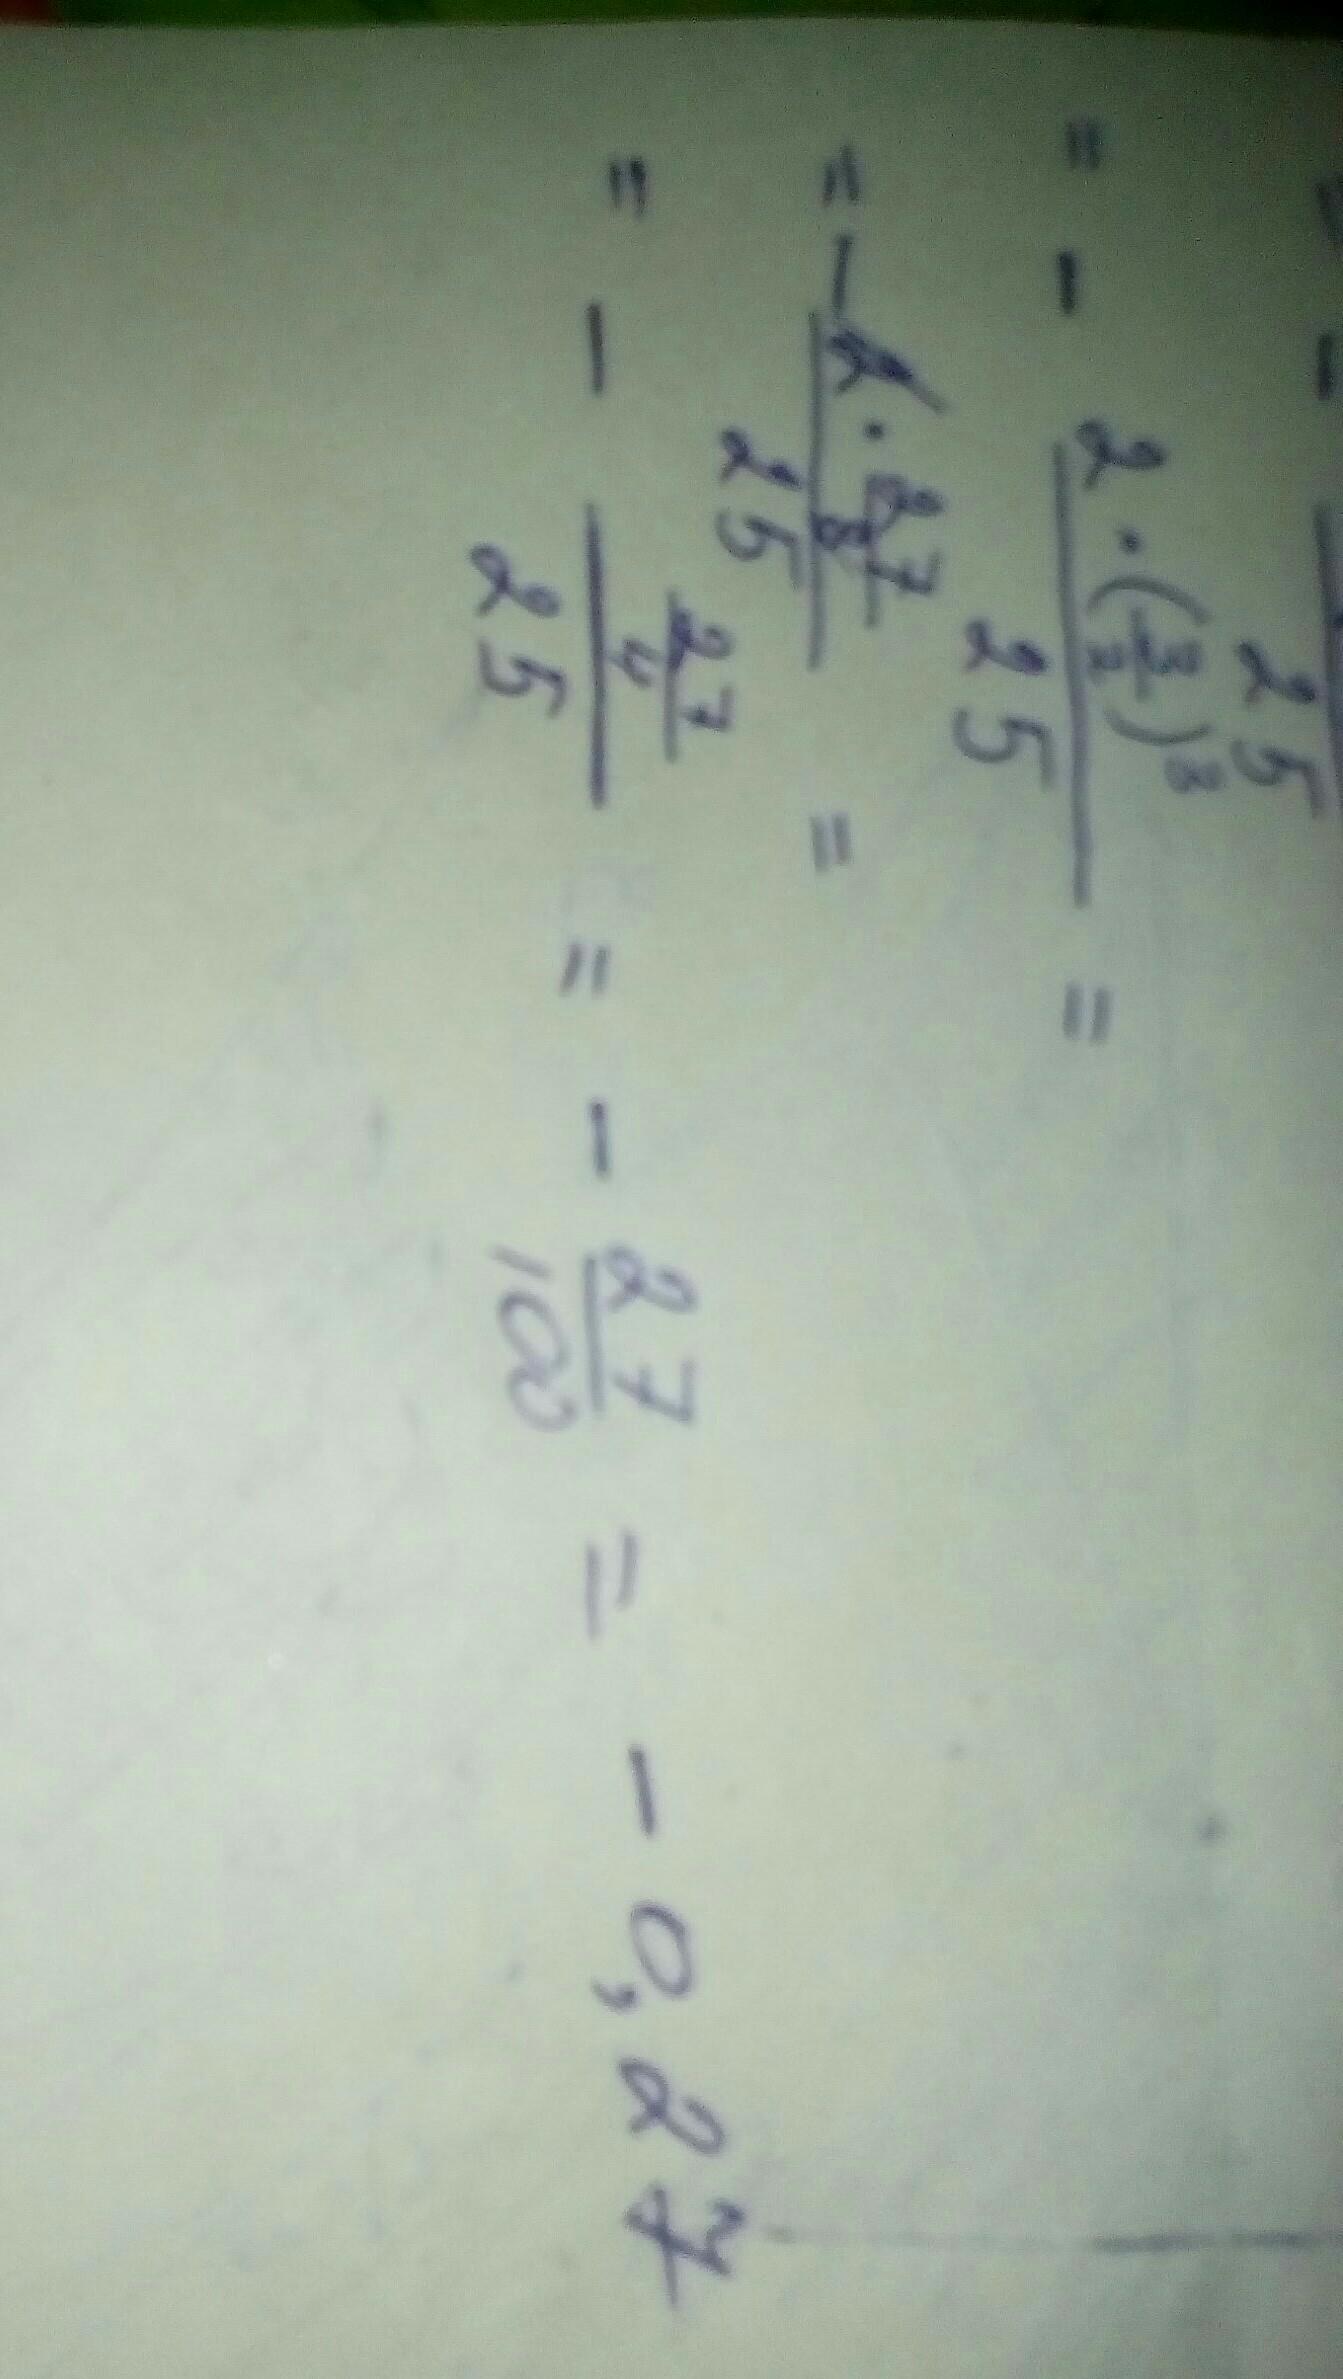 = - 25
= - 2·(3/2)³/25 =
= - 2·27/8/25 =
= - 27/4/25 = - 27/100 = - 0,27